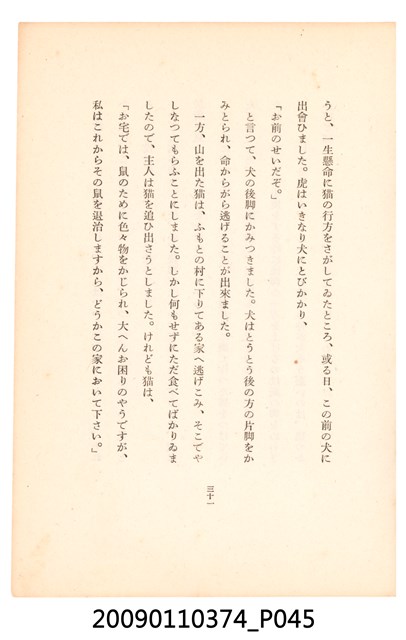 うと、一生懸命に猫の行方をさがしてゐたところ、或る日、この前の犬に
出會ひました。虎はいきなり犬にとびかかり、
「お前のせいだぞ。」
と言つて、犬の後脚にかみつきました。犬はとうとう後の方の片脚をか
みとられ、命からがら逃げることが出來ました。
一方、山を出た猫は、ふもとの村に下りてある家へ逃げこみ、そこでや
しなつてもらふことにしました。しかし何もせずにただ食べてばかりゐま
したので、主人は猫を追ひ出さうとしました。けれども猫は、
「お宅では、鼠のために色々物をかじられ、大へんお困りのやうですが、
私はこれからその鼠を退治しますから、どうかこの家において下さい。」
三十一
20090110374_P045